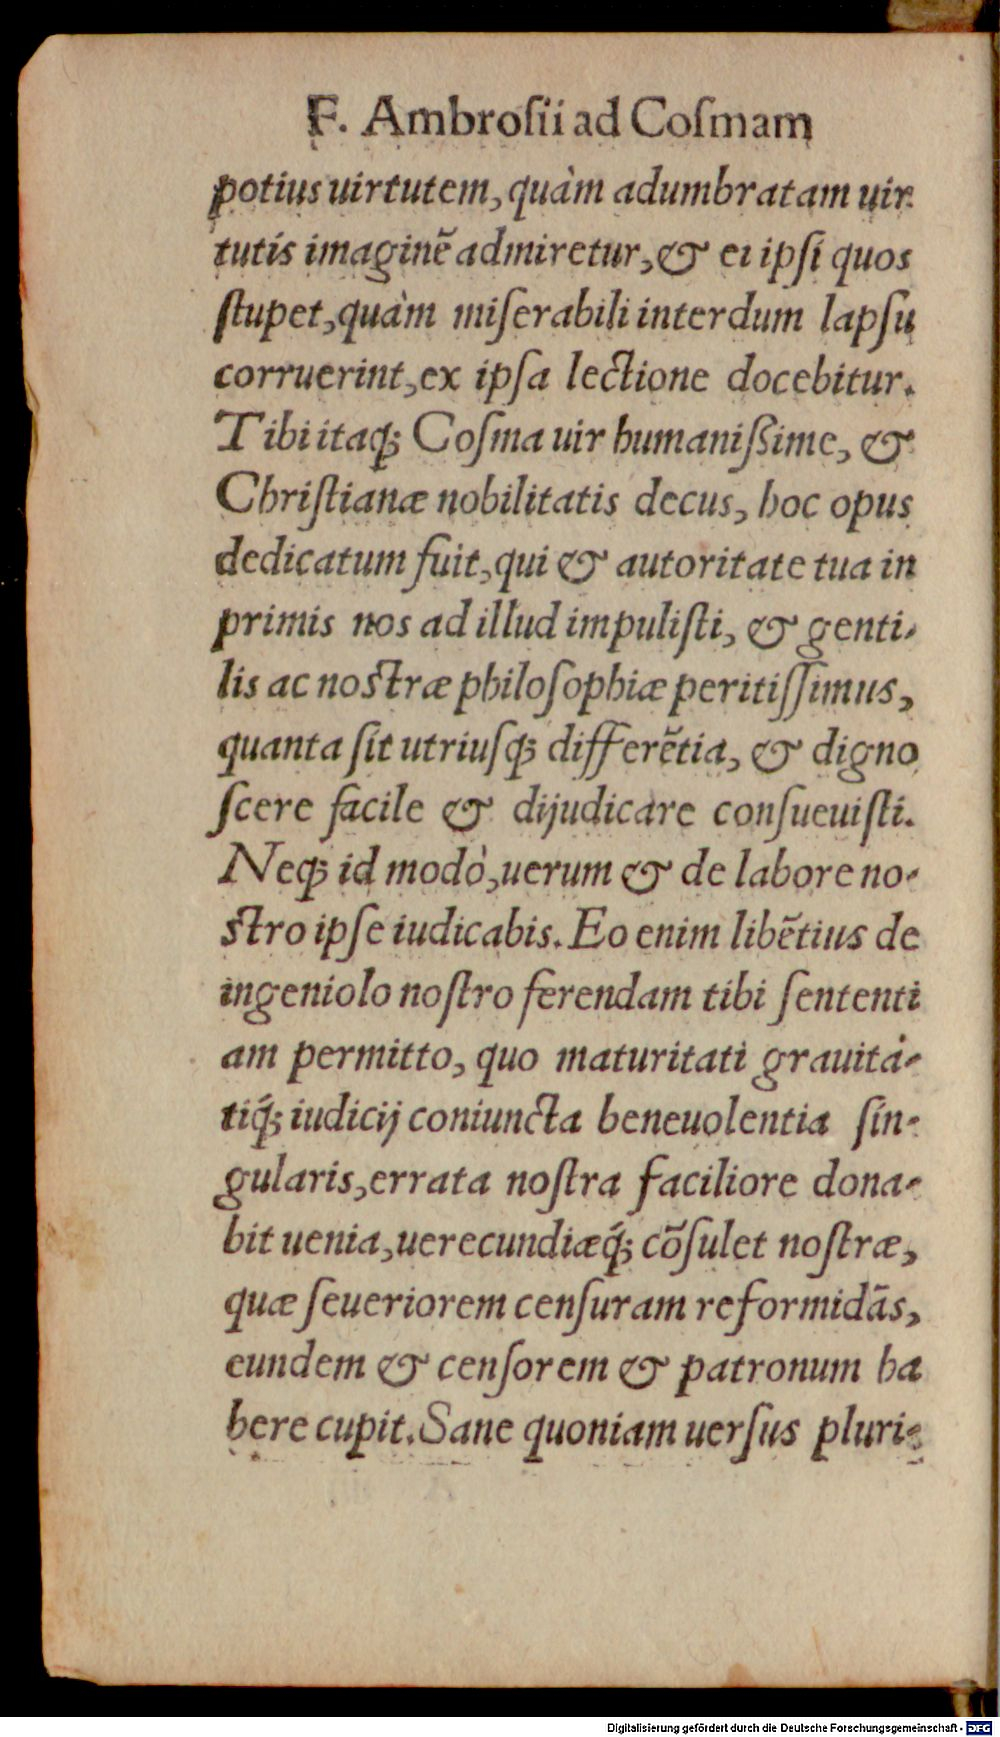 F. Ambroſii ad Coſmam
potius uirtutem, quàm adumbratam uir-
tutis imaginē admiretur, & ei ipſi quos
ſtupet, quàm miſerabili interdum lapſu
corruerint, ex ipſa lectione docebitur.
Tibi itaq; Coſma uir humaniſsime, &
Chriſtianæ nobilitatis decus, hoc opus
dedicatum fuit, qui & autoritate tua in
primis nos ad illud impuliſti, & genti-
lis ac noſtræ philoſophiæ peritiſſimus,
quanta ſit utriuſq; differētia, & digno
ſcere facile & dijudicare conſueuiſti.
Neq; id modò, uerum & de labore no-
ſtro ipſe iudicabis. Eo enim libētius de
ingeniolo noſtro ferendam tibi ſententi
am permitto, quo maturitati grauitá-
tiq́; iudicij coniuncta beneuolentia ſin-
gularis, errata noſtra faciliore dona-
bit uenia, uerecundiæq́; cōſulet noſtræ,
quæ ſeueriorem cenſuram reformidās,
eundem & cenſorem & patronum ha
bere cupit. Sane quoniam uerſus pluri-
Digitalisierung gefördert durch die Deutsche Forschungsgemeinschaft - DFG